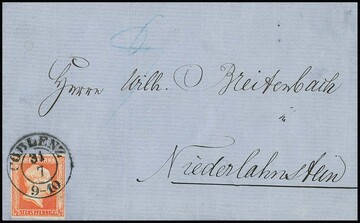 Herrn Wilh. Breitenbach
in
Niederlahnstein
COBLENZ
31
7
9-10
SECHS PFENNIG